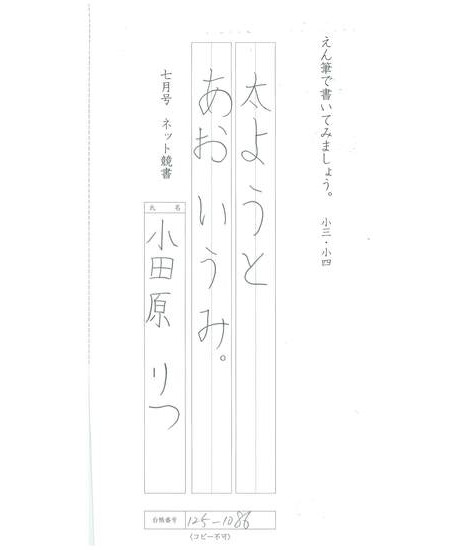 えん筆で書いてみましょう。 小三・小四
太ようと
あおいうみ。
七月号 ネット競書
氏名
小田原 りつ
台帳番号 125-1086
(コピー不可)